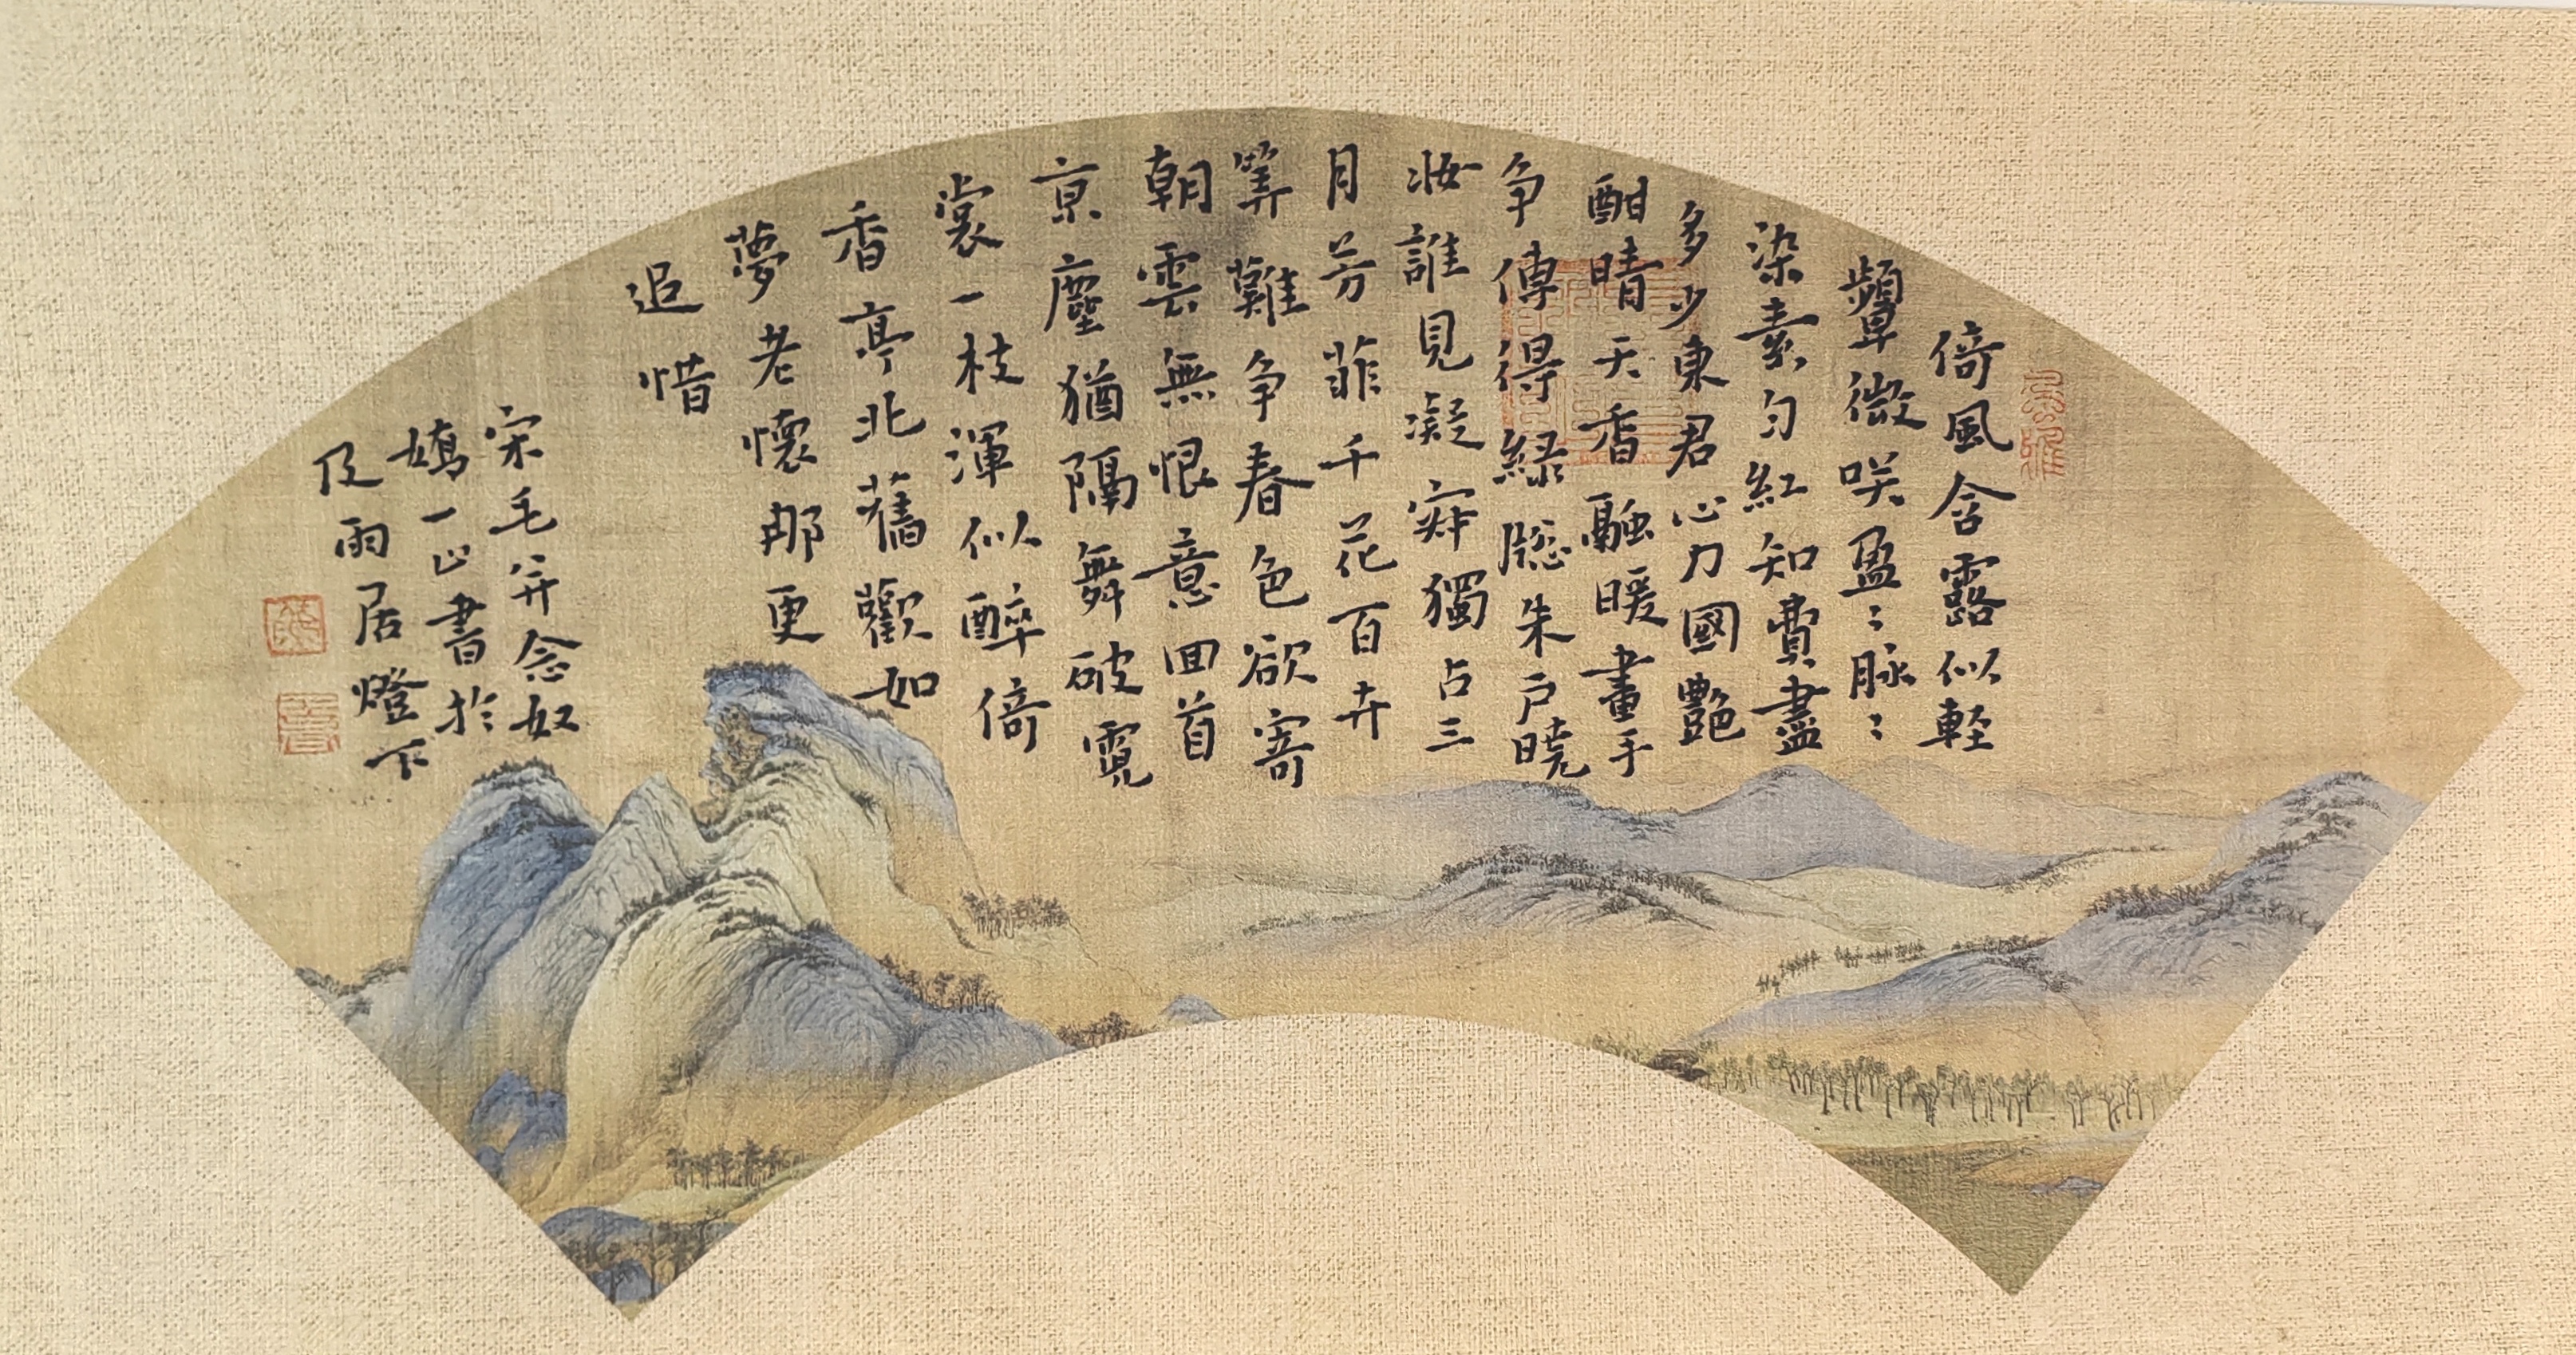 倚風含露似輕
顰微咲盈〻脉〻
染素匀紅知費盡
多少東君心力國艷
酣晴天香融暖畫手
争傳得緑牕朱戸曉
妝誰見凝寂獨占三
月芳菲千花百卉
筭難争春色欲寄
朝雲無恨意回首
京塵猶隔舞破霓
裳一枝渾似醉倚
香亭北舊歡如
夢老懷那更
追惜
宋毛幵念奴
嬌一山書於
及雨居燈下